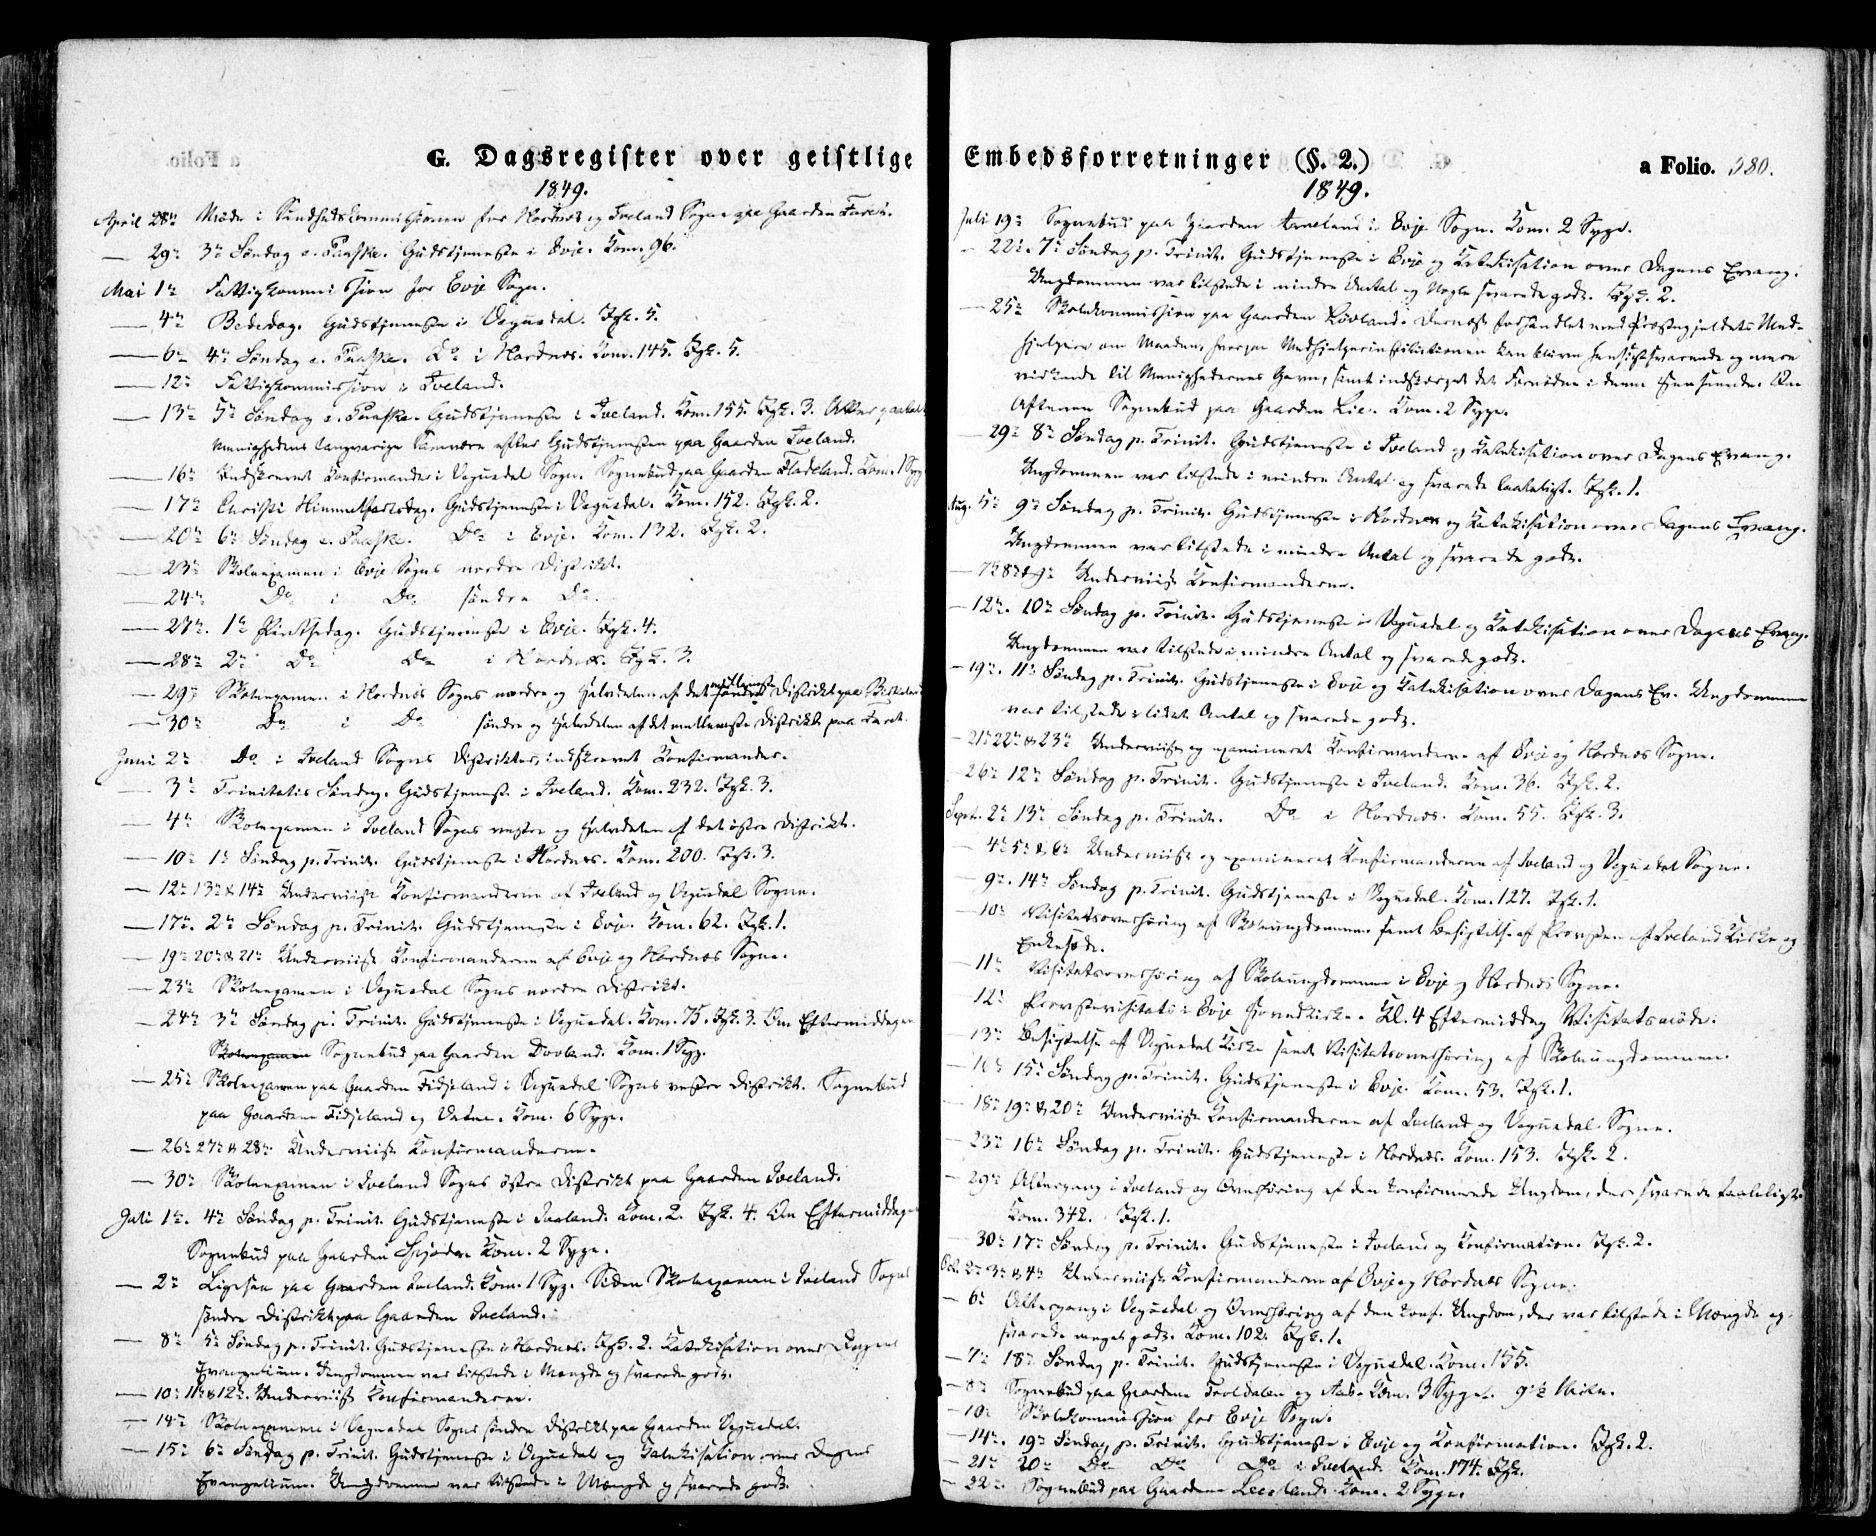 G. Dagsregister over geistlige
1849.
April 28de Møde i Sundhedskommissionen for Hordnes og Iveland Sogne paa Gaarden
— 29de 3de Søndag e. Paaske. Gudstjeneste i Evje. Kom. 96.
Mai 1ste Fattigkommission for Evje Sogn.
— 4de Bededag. Gudstjeneste i Vegusdal. Fgk. 5.
— 6te 4de Søndag e. Paaske. Do i Hordnes. Kom. 145. Fgk. 5.
— 12te Fattigkommission i Iveland.
— 13de 5te Søndag e. Paaske. Gudstjeneste i Iveland. Kom. 155. Fgk. 3.
Menighedens langvarige Samvære efter Gudstjenesten paa Gaarden Iveland.
— 16de Indskrevet Konfirmander i Vegusdal Sogn. Sognebud paa Gaarden Fladeland. Kom. 1 Syg
— 17de Christi Himmelfartsdag. Gudstjeneste i Vegusdal. Kom. 152. Fgk. 2.
— 20de 6te Søndag e. Paaske. Do i Evje. Kom. 132. Fgk. 2.
— 23de Skoleexamen i Evje Sogns nordre Distrikt.
— 24de Do i Do søndre Do.
— 27de. 1ste Pintsedag. Gudstjeneste i Evje. Fgk. 4.
— 28de 2den Do Do i Hordnes. Fgk. 3.
— 29de Skoleexamen i Hordnes Sogns nordre og Halvdelen af det søndre mellemste Distrikt paa
— 30te Do i Do søndre og Halvdelen af det mellemste Distrikt paa
Juni 2den Do i Iveland Sogns Distrikter, indskrevet Konfirmander.
— 3de Trinitatis Søndag. Gudstjeneste i Iveland. Kom. 232. Fgk. 3.
— 4de Skoleexamen i Iveland Sogns vestre og Halvdelen af det østre Distrikt.
— 10de 1ste Søndag p. Trinit. Gudstjeneste i Hordnes. Kom. 200. Fgk. 3.
— 12te 13de & 14de Underviist Konfirmanderne af Iveland og Vegusdal Sogne.
— 17de. 2den Søndag p. Trinit. Gudstjeneste i Evje. Kom. 62. Fgk. 1.
— 19de 20de & 21de Underviist Konfirmanderne af Evje og Hordnes Sogne.
— 23de Skoleexamen i Vegusdal Sogns nordre Distrikt.
— 24de 3de Søndag p. Trinit. Gudstjeneste i Vegusdal. Kom. 75. Fgk. 3. Om Eftermiddagen
Skoleexamen Sognebud paa Gaarden Dovland. Kom. 1 Syg.
— 25de Skoleexamen paa Gaarden Fidjeland i Vegusdal Sogns vestre Distrikt. Sognebud
paa Gaardene Fidjeland og Vatne. Kom. 6 Syge.
— 26de 27de & 28de Underviist Konfirmanderne.
— 30te Skoleexamen i Iveland Sogns østre Distrikt paa Gaarden Iveland.
Juli 1ste. 4de Søndag p. Trinit. Gudstjeneste i Iveland. Kom. 2. Fgk. 4. Om Eftermiddagen
Sognebud paa Gaarden Kom. 2 Syge.
— 2den paa Gaarden Iveland. Kom. 1 Syg. Siden Skoleexamen i Iveland Sogns
søndre Distrikt paa Gaarden Iveland.
— 8de 5te Søndag p. Trinit. Gudstjeneste i Hordnes. Fgk. 2. Katekisation over Dagens
Evangelium. Ungdommen var tilstede i Mængde og svarede godt.
— 10de 11te & 12te. Underviist Konfirmanderne.
— 14de Skoleexamen i Vegusdal Sogns søndre Distrikt paa Gaarden Vegusdal.
— 15de 6te Søndag p. Trinit. Gudstjeneste i Vegusdal og Katekisation over Dagens
Evangelium. Ungdommen var tilstede i Mængde og svarede godt.
Embedsforretninger (§. 2.) a Folio. 380.
1849.
Juli 19de Sognebud paa Gaarden i Evje Sogn. Kom. 2 Syge.
— 22de. 7de Søndag p. Trinit. Gudstjeneste i Evje og Katekisation over Dagens Evang.
Ungdommen var tilstede i mindre Antal og Nogle svarede godt. Fgk. 2.
— 25de Skolekommission paa Gaarden Løvland. Dernæst forhandlet med Præstegjeldets Med-
hjelpere om Maaden, hvorpaa Medhjelperinstitutionen kan blive hensigtsvarende og mere
virkende til Menighedernes Gavn, samt indskærpet det Fornødne i denne Henseende. Om
Aftenen Sognebud paa Gaarden Lie. Kom. 2 Syge.
— 29de 8de Søndag p. Trinit. Gudstjeneste i Iveland og Katekisation over Dagens Evang.
Ungdommen var tilstede i mindre Antal og svarede taaleligt. Fgk. 1.
Aug. 5te 9de Søndag p. Trinit. Gudstjeneste i Hordnes og Katekisation over Dagens Evang.
Ungdommen var tilstede i mindre Antal og svarede godt.
— 7de 8de & 9de Underviist Konfirmanderne.
— 12te. 10de Søndag p. Trinit. Gudstjeneste i Vegusdal og Katekisation over Dagens Evang.
Ungdommen var tilstede i mindre Antal og svarede godt.
— 19de. 11te Søndag p. Trinit. Gudstjeneste i Evje og Katekisation over Dagens Ev. Ungdommen
var tilstede i lidet Antal og svarede godt.
— 21de 22de & 23de Underviist og examineret Konfirmanderne af Evje og Hordnes Sogne.
— 26de 12te Søndag p. Trinit. Gudstjeneste i Iveland. Kom. 36. Fgk. 2.
Sept. 2den 13de Søndag p. Trinit. Do i Hordnes. Kom. 55. Fgk. 3.
— 4de 5te & 6te Underviist og examineret Konfirmanderne af Iveland og Vegusdal Sogne.
— 9de. 14de Søndag p. Trinit. Gudstjeneste i Vegusdal. Kom. 127. Fgk. 1.
— 10de Visitatsoverhøring af Skoleungdommen samt Besigtelse af Provsten af Iveland Kirke og
Enkesæde.
— 11te Visitatsoverhøring af Skoleungdommen i Evje og Hordnes Sogne.
— 12te Provstevisitats i Evje Hovedkirke. Kl. 4 Eftermiddag Visitatsmøde.
— 13de Besigtelse af Vegusdal Kirke samt Visitatsoverhøring af Skoleungdommen.
— 16de 15de Søndag p. Trinit. Gudstjeneste i Evje. Kom. 53. Fgk. 1.
— 18de 19de & 20de Underviist Konfirmanderne af Iveland og Vegusdal Sogne.
— 23de 16de Søndag p. Trinit. Gudstjeneste i Hordnes. Kom. 153. Fgk. 2.
— 29de Altergang i Iveland og Overhøring af den konfirmerede Ungdom, der svarede taaleligt.
Kom. 342. Fgk. 1.
— 30te 17de Søndag p. Trinit. Gudstjeneste i Iveland og Konfirmation. Fgk. 2.
Oct. 2den 3de & 4de Underviist Konfirmanderne af Evje og Hordnes Sogne.
— 6te Altergang i Vegusdal og Overhøring af den konf. Ungdom, der var tilstede i Mængde og
svarede meget godt. Kom. 102. Fgk. 1.
— 7de 18de Søndag p. Trinit. Gudstjeneste i Vegusdal. Kom. 155.
— 8de Sognebud paa Gaardene Troldalen og Aas. Kom. 3 Syge.
— 10de Skolekommission for Evje Sogn.
— 14de. 19de Søndag p. Trinit. Gudstjeneste i Evje og Konfirmation. Fgk. 2.
— 21de 20de Do Do Do i Iveland. Kom. 174. Fgk.
— 22de. Sognebud paa Gaarden Kom. 2 Syge.